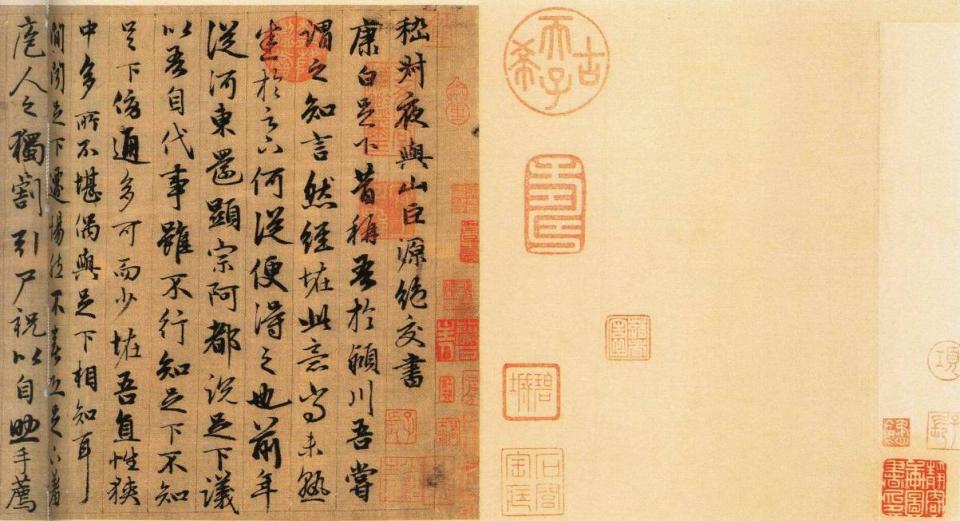 嵇叔夜與山巨源絕交書
康白足下昔稱吾於潁川吾嘗
謂之知言然經怪此意尚未熟
悉於足下何從便得之也前年
從河東還顯宗阿都說足下議
以吾自代事雖不行知足下不知
足下傍通多可而少怪吾直性狹
中多所不堪偶與足下相知耳
間聞足下遷惕然不喜恐足下羞
庖人之獨割引尸祝以自助手薦
古希天子
項
靜寄軒圖書印